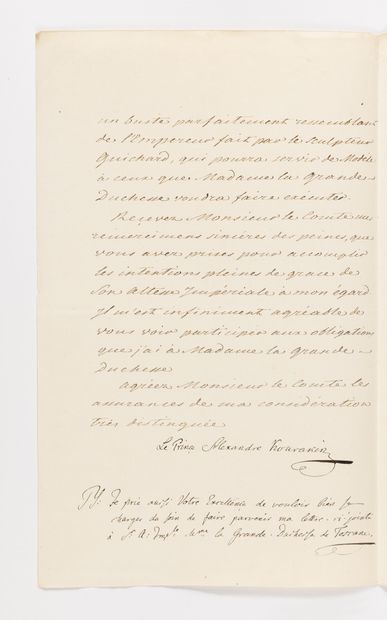 un buste parfaitement ressemblant
de l'Empereur fait par le sculpteur
Guichard, qui pourra servir de Modele
à ceux que Madame la Grande
Duchesse voudra faire exécuter.
Reçevez Monsieur le Comte mes
remercimens sinçères des peines, que
vous avez prises pour accomplir
les intentions pleines de grace de
Son Altesse Impériale à mon égard
Il m'est infiniment agréable de
vous voir participer aux obligations
que j'ai à Madame la Grande-
Duchesse
Agréez Monsieur le Comte les
assurances de ma considération
très distinguée
Le Prince Alexandre Kourakin
PS: Je prie aussi Votre Excellence de vouloir bien se
charger du soin de faire parvenir ma lettre ci jointe
à S. A: Imple Mme la Grande-Duchesse de Toscane.